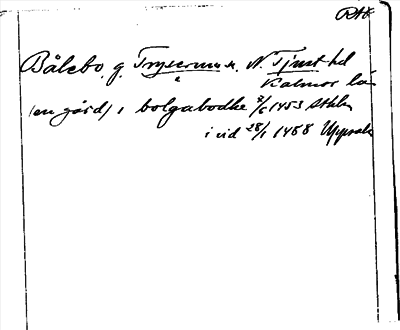 RAÄ
Bålebo, g. Tryserum sn. N. Tjust hd
Kalmar lä
(en gård) i bolgabodhe 3/6 1453 Sthlm
i vid 28/1 1488 Uppsala